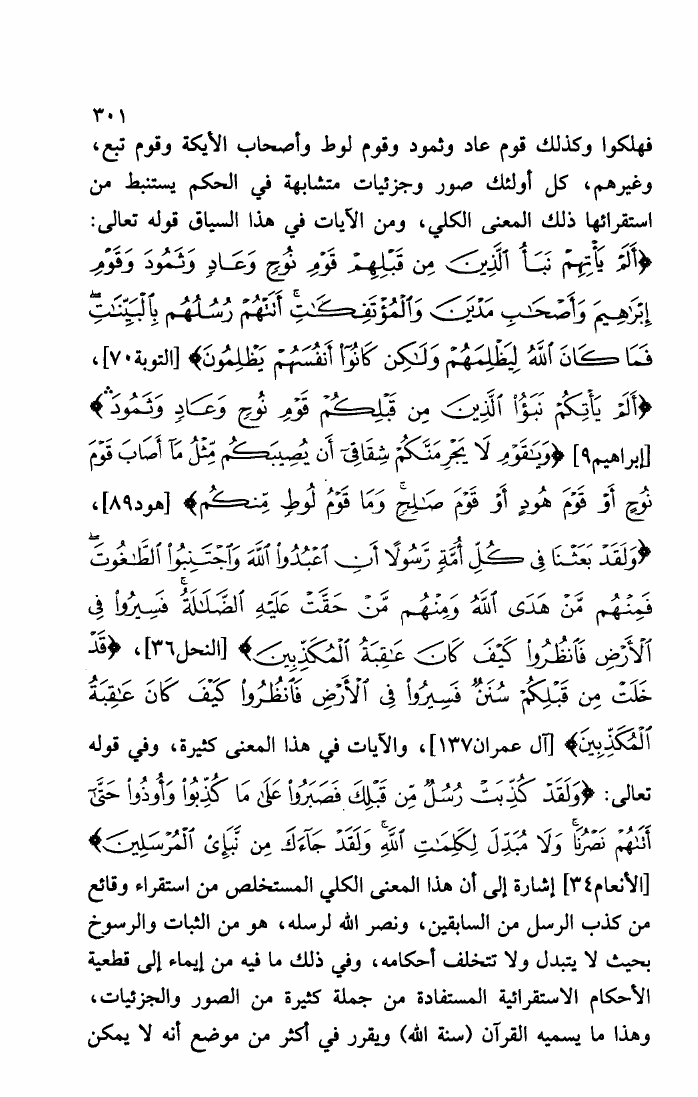 ٣٠١
فهلكوا وكذلك قوم عاد وثمود وقوم لوط وأصحاب الأيكة وقوم تبع،
وغيرهم، كل أولئك صور وجزئيات متشابهة في الحكم يستنبط من
استقرائها ذلك المعنى الكلي، ومن الآيات في هذا السياق قوله تعالى:
﴿أَلَمْ يَأْتِهِمْ نَبَأُ ٱلَّذِينَ مِن قَبْلِهِمْ قَوْمِ نُوحٍ وَعَادٍ وَثَمُودَ وَقَوْمِ
إِبْرَٰهِيمَ وَأَصْحَـٰبِ مَدْيَنَ وَٱلْمُؤْتَفِكَـٰتِ ۚ أَتَتْهُمْ رُسُلُهُم بِٱلْبَيِّنَـٰتِ ۖ
فَمَا كَانَ ٱللَّهُ لِيَظْلِمَهُمْ وَلَـٰكِن كَانُوٓا۟ أَنفُسَهُمْ يَظْلِمُونَ﴾ [التوبة٧٠]،
﴿أَلَمْ يَأْتِكُمْ نَبَؤُا۟ ٱلَّذِينَ مِن قَبْلِكُمْ قَوْمِ نُوحٍ وَعَادٍ وَثَمُودَ ۛ﴾
[إبراهيم٩] ﴿وَيَـٰقَوْمِ لَا يَجْرِمَنَّكُمْ شِقَاقِىٓ أَن يُصِيبَكُم مِّثْلُ مَآ أَصَابَ قَوْمَ
نُوحٍ أَوْ قَوْمَ هُودٍ أَوْ قَوْمَ صَـٰلِحٍ ۚ وَمَا قَوْمُ لُوطٍ مِّنكُم﴾ [هود٨٩]،
﴿وَلَقَدْ بَعَثْنَا فِى كُلِّ أُمَّةٍ رَّسُولًا أَنِ ٱعْبُدُوا۟ ٱللَّهَ وَٱجْتَنِبُوا۟ ٱلطَّـٰغُوتَ ۖ
فَمِنْهُم مَّنْ هَدَى ٱللَّهُ وَمِنْهُم مَّنْ حَقَّتْ عَلَيْهِ ٱلضَّلَـٰلَةُ ۚ فَسِيرُوا۟ فِى
ٱلْأَرْضِ فَٱنظُرُوا۟ كَيْفَ كَانَ عَـٰقِبَةُ ٱلْمُكَذِّبِينَ﴾ [النحل٣٦]، ﴿قَدْ
خَلَتْ مِن قَبْلِكُمْ سُنَنٌ فَسِيرُوا۟ فِى ٱلْأَرْضِ فَٱنظُرُوا۟ كَيْفَ كَانَ عَـٰقِبَةُ
ٱلْمُكَذِّبِينَ﴾ [آل عمران١٣٧]، والآيات في هذا المعنى كثيرة، وفي قوله
تعالى: ﴿وَلَقَدْ كُذِّبَتْ رُسُلٌ مِّن قَبْلِكَ فَصَبَرُوا۟ عَلَىٰ مَا كُذِّبُوا۟ وَأُوذُوا۟ حَتَّىٰٓ
أَتَىٰهُمْ نَصْرُنَا ۚ وَلَا مُبَدِّلَ لِكَلِمَـٰتِ ٱللَّهِ ۚ وَلَقَدْ جَآءَكَ مِن نَّبَإِى۟ ٱلْمُرْسَلِينَ﴾
[الأنعام٣٤] إشارة إلى أن هذا المعنى الكلي المستخلص من استقراء وقائع
من كذب الرسل من السابقين، ونصر الله لرسله، هو من الثبات والرسوخ
بحيث لا يتبدل ولا تتخلف أحكامه، وفي ذلك ما فيه من إيماء إلى قطعية
الأحكام الاستقرائية المستفادة من جملة كثيرة من الصور والجزئيات،
وهذا ما يسميه القرآن (سنة الله) ويقرر في أكثر من موضع أنه لا يمكن